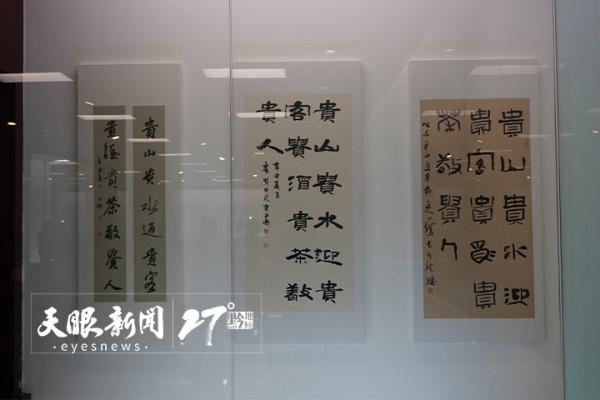 貴山貴水迎貴客
貴茶敬貴人
貴山貴水迎貴
客貴酒貴茶敬
貴人
貴山貴水迎
貴客貴酒貴
茶敬貴人
天眼新闻
·eyesnews·
27°